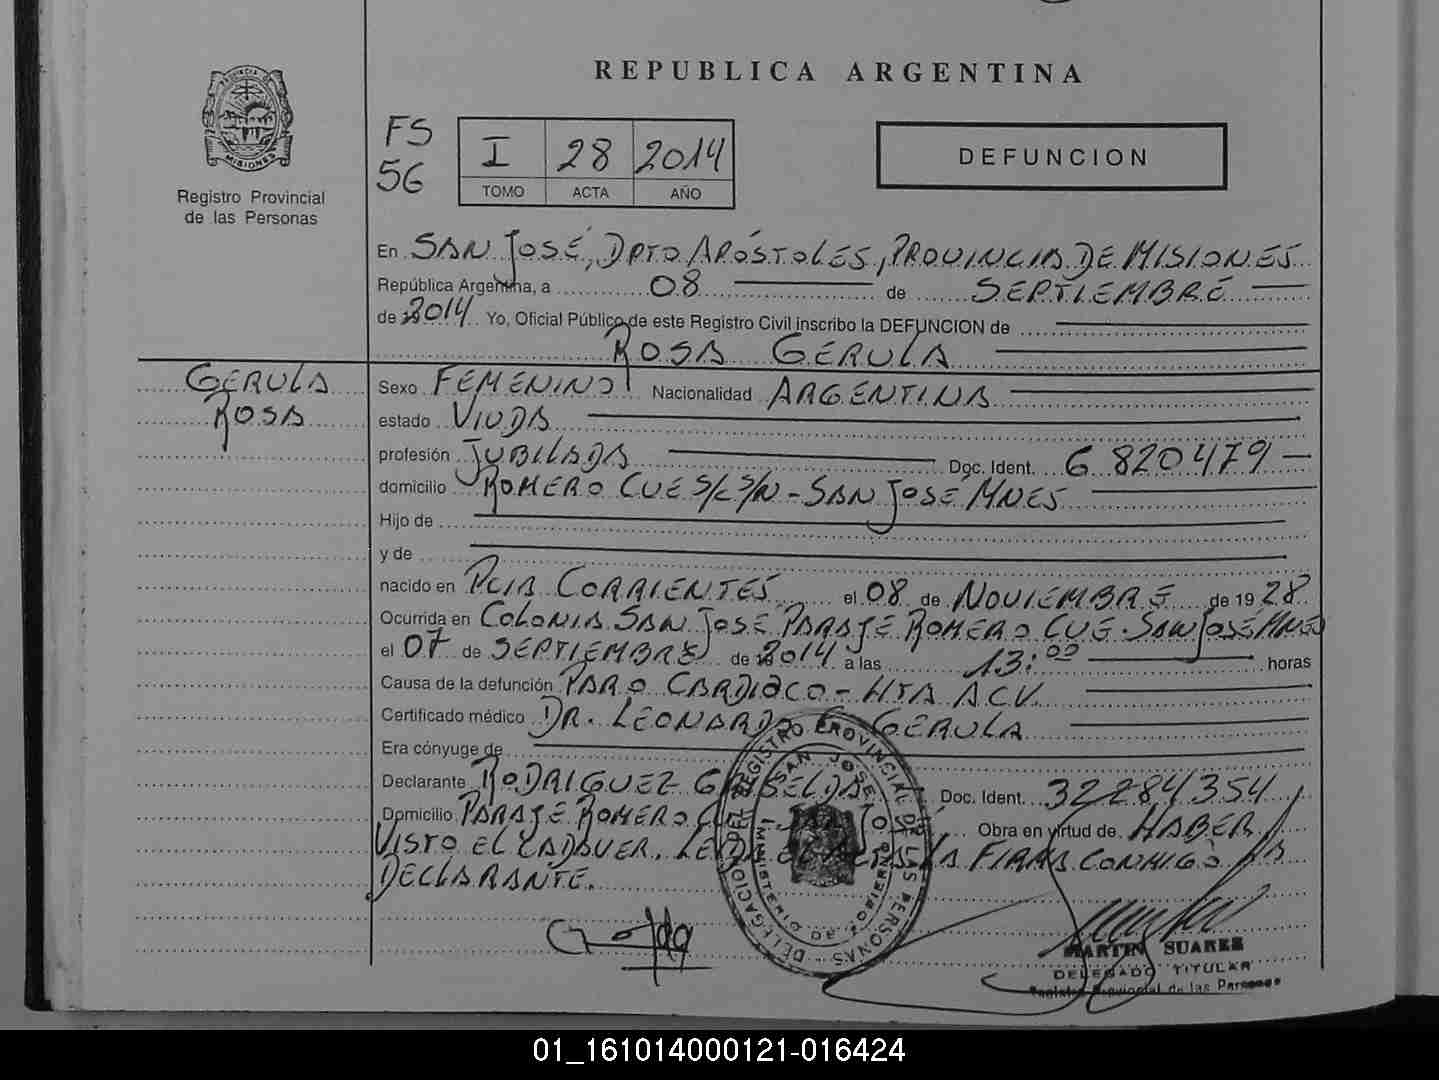 REPUBLICA ARGENTINA
PROVINCIA DE
MISIONES
Registro Provincial
de las Personas
FS
56
I 28 2014
TOMO ACTA AÑO
DEFUNCION
En SAN JOSÉ, DPTO APÓSTOLES, PROVINCIA DE MISIONES
República Argentina, a 08 de SEPTIEMBRE
de 2014 Yo, Oficial Público de este Registro Civil inscribo la DEFUNCION de
ROSA GERULA
GERULA
ROSA
Sexo FEMENINO Nacionalidad ARGENTINA
estado VIUDA
profesión JUBILADA Doc. Ident. 6 820479
domicilio ROMERO CUE S/C S/N - SAN JOSÉ MNES
Hijo de
y de
nacido en PCIA CORRIENTES el 08 de NOVIEMBRE de 1928
Ocurrida en COLONIA SAN JOSE PARAJE ROMERO CUE - SAN JOSE MNES
el 07 de SEPTIEMBRE de 2014 a las 13:00 horas
Causa de la defunción PARO CARDIACO - HTA ACV.
Certificado médico DR. LEONARDO GERULA
Era cónyuge de
Declarante RODRIGUEZ GRISELDA Doc. Ident. 32284354
Domicilio PARAJE ROMERO CUE - SAN JO Obra en virtud de HABER
VISTO EL CADAVER. LEIDA EL ACTA LA FIRMA CONMIGO LA
DECLARANTE.
DELEGACION DEL REGISTRO PROVINCIAL DE LAS PERSONAS
SAN JOSE
MINISTERIO DE GOBIERNO
MARTIN SUAREZ
DELEGADO TITULAR
Registro Provincial de las Personas
01_161014000121-016424